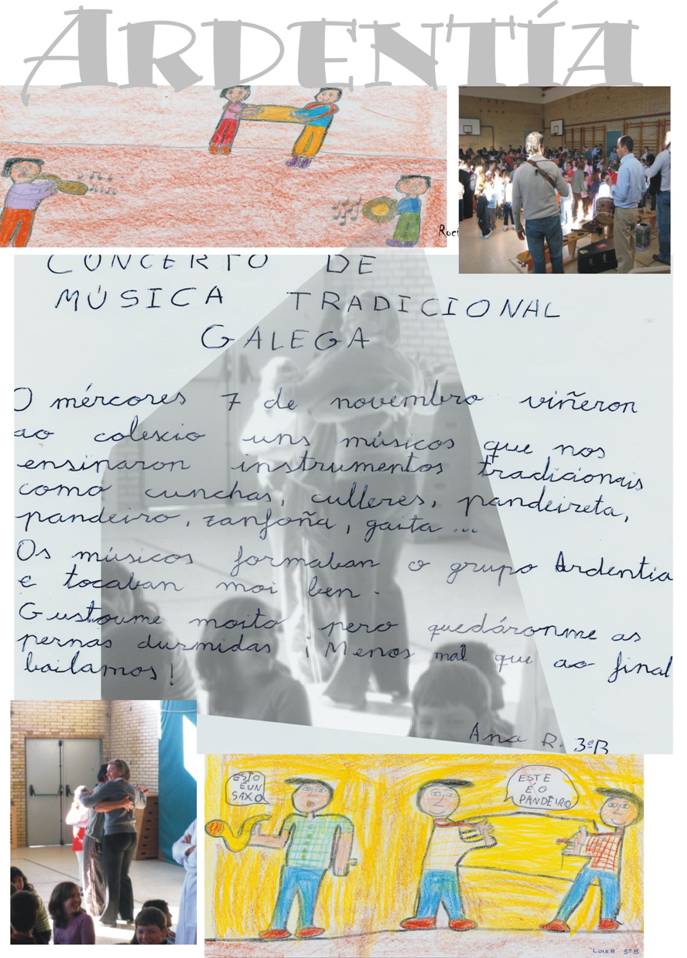 ARDENTÍA
CONCERTO DE
MÚSICA TRADICIONAL
GALEGA
O mércores 7 de novembro viñeron
ao colexio uns músicos que nos
ensinaron instrumentos tradicionais
como cunchas, culleres, pandeireta,
pandeiro, zanfoña, gaita ...
Os músicos formaban o grupo Ardentia
e tocaban moi ben.
Gustoume moito pero quedáronme as
pernas durmidas ¡Menos mal que ao final
bailamos!
Ana R. 3ºB
ESTO
É UN
SAXO
ESTE
É O
PANDEIRO